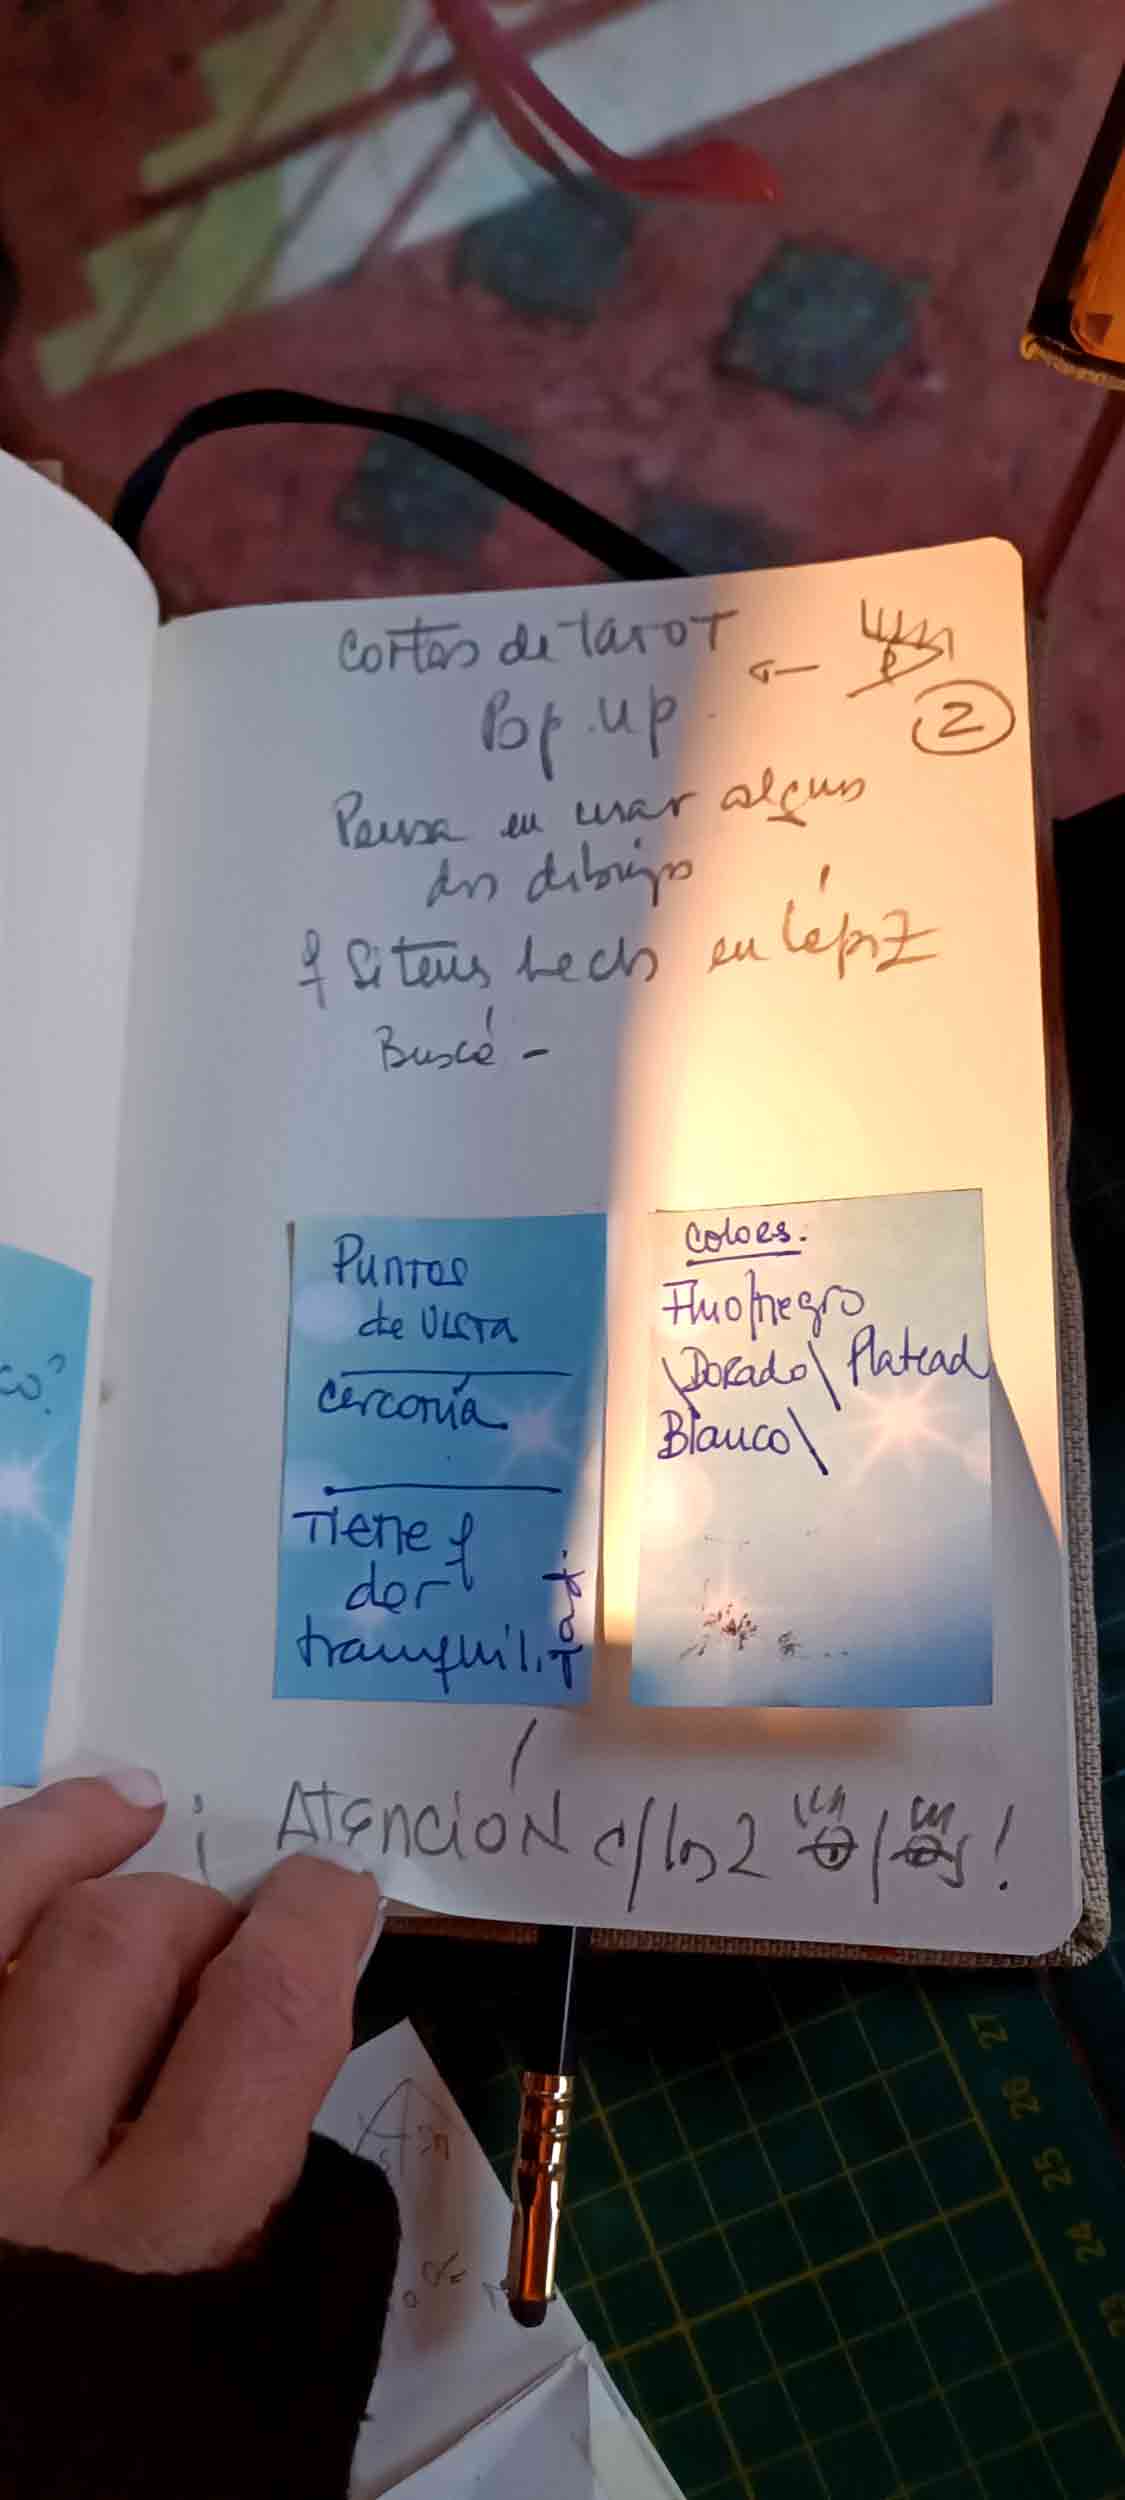 Cortes de tarot
Pop.up
2
Pensa en usar algunos
dos dibujos
q Si tenes hecho en lápiz
Buscá -
Puntos
de vista
cercanía
Tiene q
der
tranquilitad.
Coloes:
Fluo/negro
\Dorado\ Platead
Blanco\
co?
¡ Atención c/los 2 / !
27
26
25
24